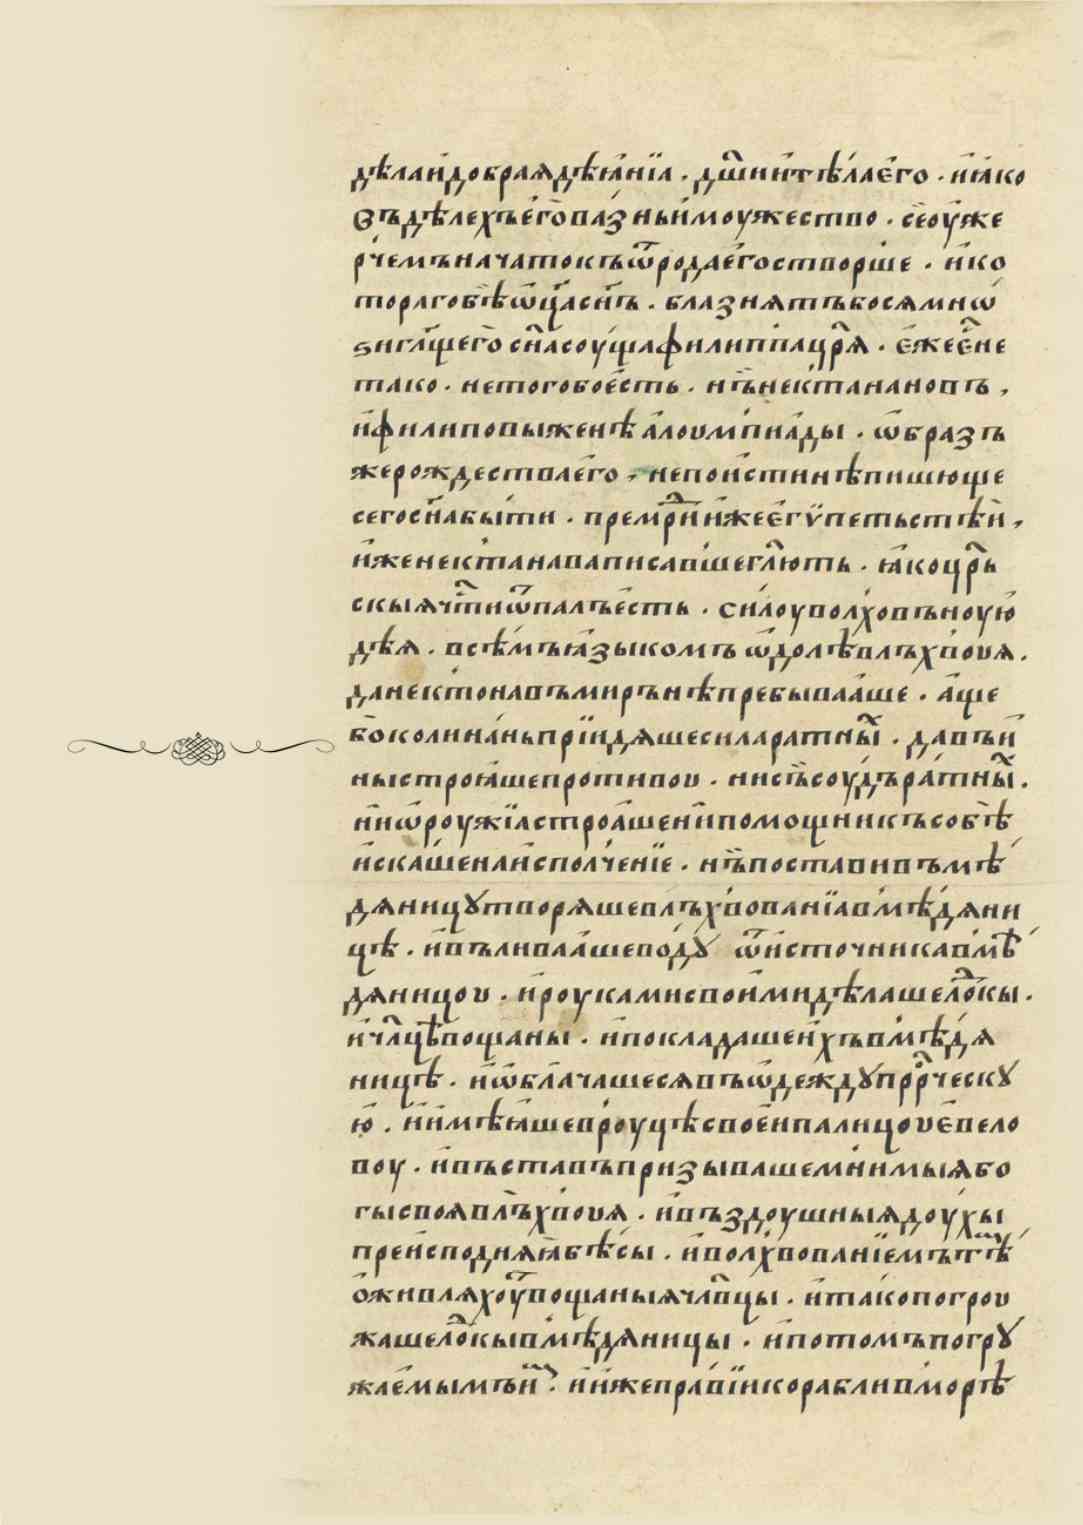 дѣлаи҆добраѧдѣꙗ҆нїа . дш҃ии҆тѣ́лае҆го . и҆ꙗ҆ко
въдѣлехъе҆гопа́зньи҆моужество . сеоу҆же
рче́мъначатокъѿродае҆гостворше . и҆ко
торагобѣѿц҃асн҃ъ . блазнѧтъбосѧмнѡ́
ѕиглщ҃егосн҃асоу́щафилиппацр҃ѧ . е҆жеесть҃не
тако . нетогобое҆сть . нъ́нектанановъ ,
и҆филиповыженѣа҆лоумпиа́ды . ѡ҆бразъ
жерождествае҆го , непои҆стиннѣпишюще
сегосн҃абы́ти . премр҃ии҆жее҆гѵ́петьстѣи ,
и҆женектанаваписавшегл҃ють . ꙗ҆коцр҃ь
скыѧчт҃иѿпалъе҆сть . си́лоуволхо́въноую҆
дѣѧ . всѣмъꙗ҆зыкомъѡ҆долѣвлъхвоуѧ .
данектонавъмиръиѣпребываа҆ше . а҆ще
боколина́ньпрїидѧшесиларатны́ . давъи҆
ныстроꙗ҆шепротивоу . нисъсоу́дъра́тны .
и҆иѡ҆роужїастроа҆шении҆помощникъсобѣ
и҆ска́шенаи҆сполче́нїе . нъ́поставивъмѣ́
дѧницꙋтворѧшевлъхвованїавмѣ́дѧни
цѣ . и҆въливаа҆шево́дꙋ ѿи҆сточникавмѣ́
дѧницоу . и҆роукамисвои҆мидѣлашело҃кы .
и҆чл҃цѣвощаны . и҆покладашеи҆хъвмѣ́дѧ
ницѣ . и҆ѡ҆бла́чашесѧвъѡ҆деждꙋпрр҃ческꙋ
ю҆ . и҆и҆мѣꙗ҆шевроуцѣсвое҆ипалицоуе҆вело
воу . и҆въставъпризывашемни́мыѧбо
гысвоѧвлъхвоуѧ . и҆въздоушныѧдоухы
преи҆сподняꙗ҆бѣсы . и҆волхвованїемътѣ
о҆живлѧхоу҆вощаныѧчл҃вцы . и҆та́копогроу
жашело҃кывмѣдѧницы . и҆потомъпогрꙋ
жае҆мымъи҆ . и҆и҆жепра́вїикорабливморѣ